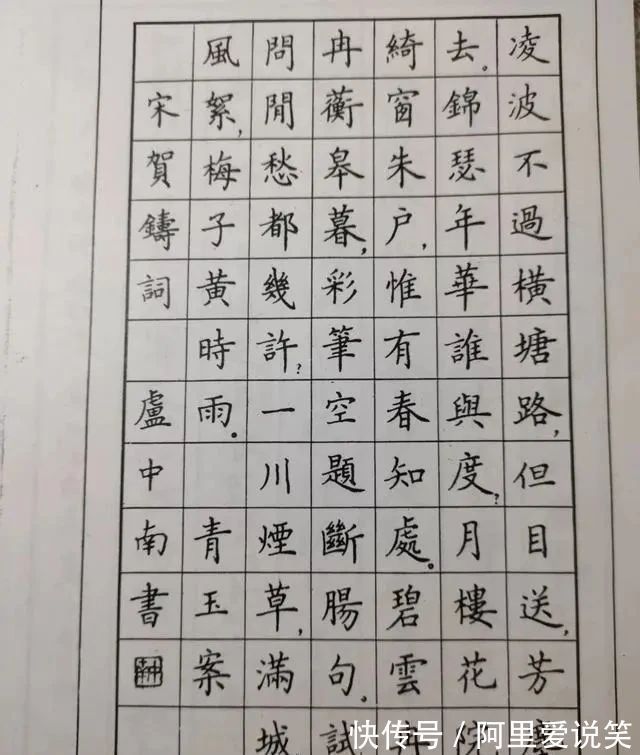 凌波不過橫塘路,但目送,芳
去。錦瑟年華誰與度?月樓花
綺窗朱户,惟有春知處。碧雲
冉蘅皋暮,彩筆空題斷腸句。試
問閒愁都幾許?一川煙草,滿城
風絮,梅子黃時雨。 青玉案
宋賀鑄詞 盧中南書
快传号 / 阿里爱说笑